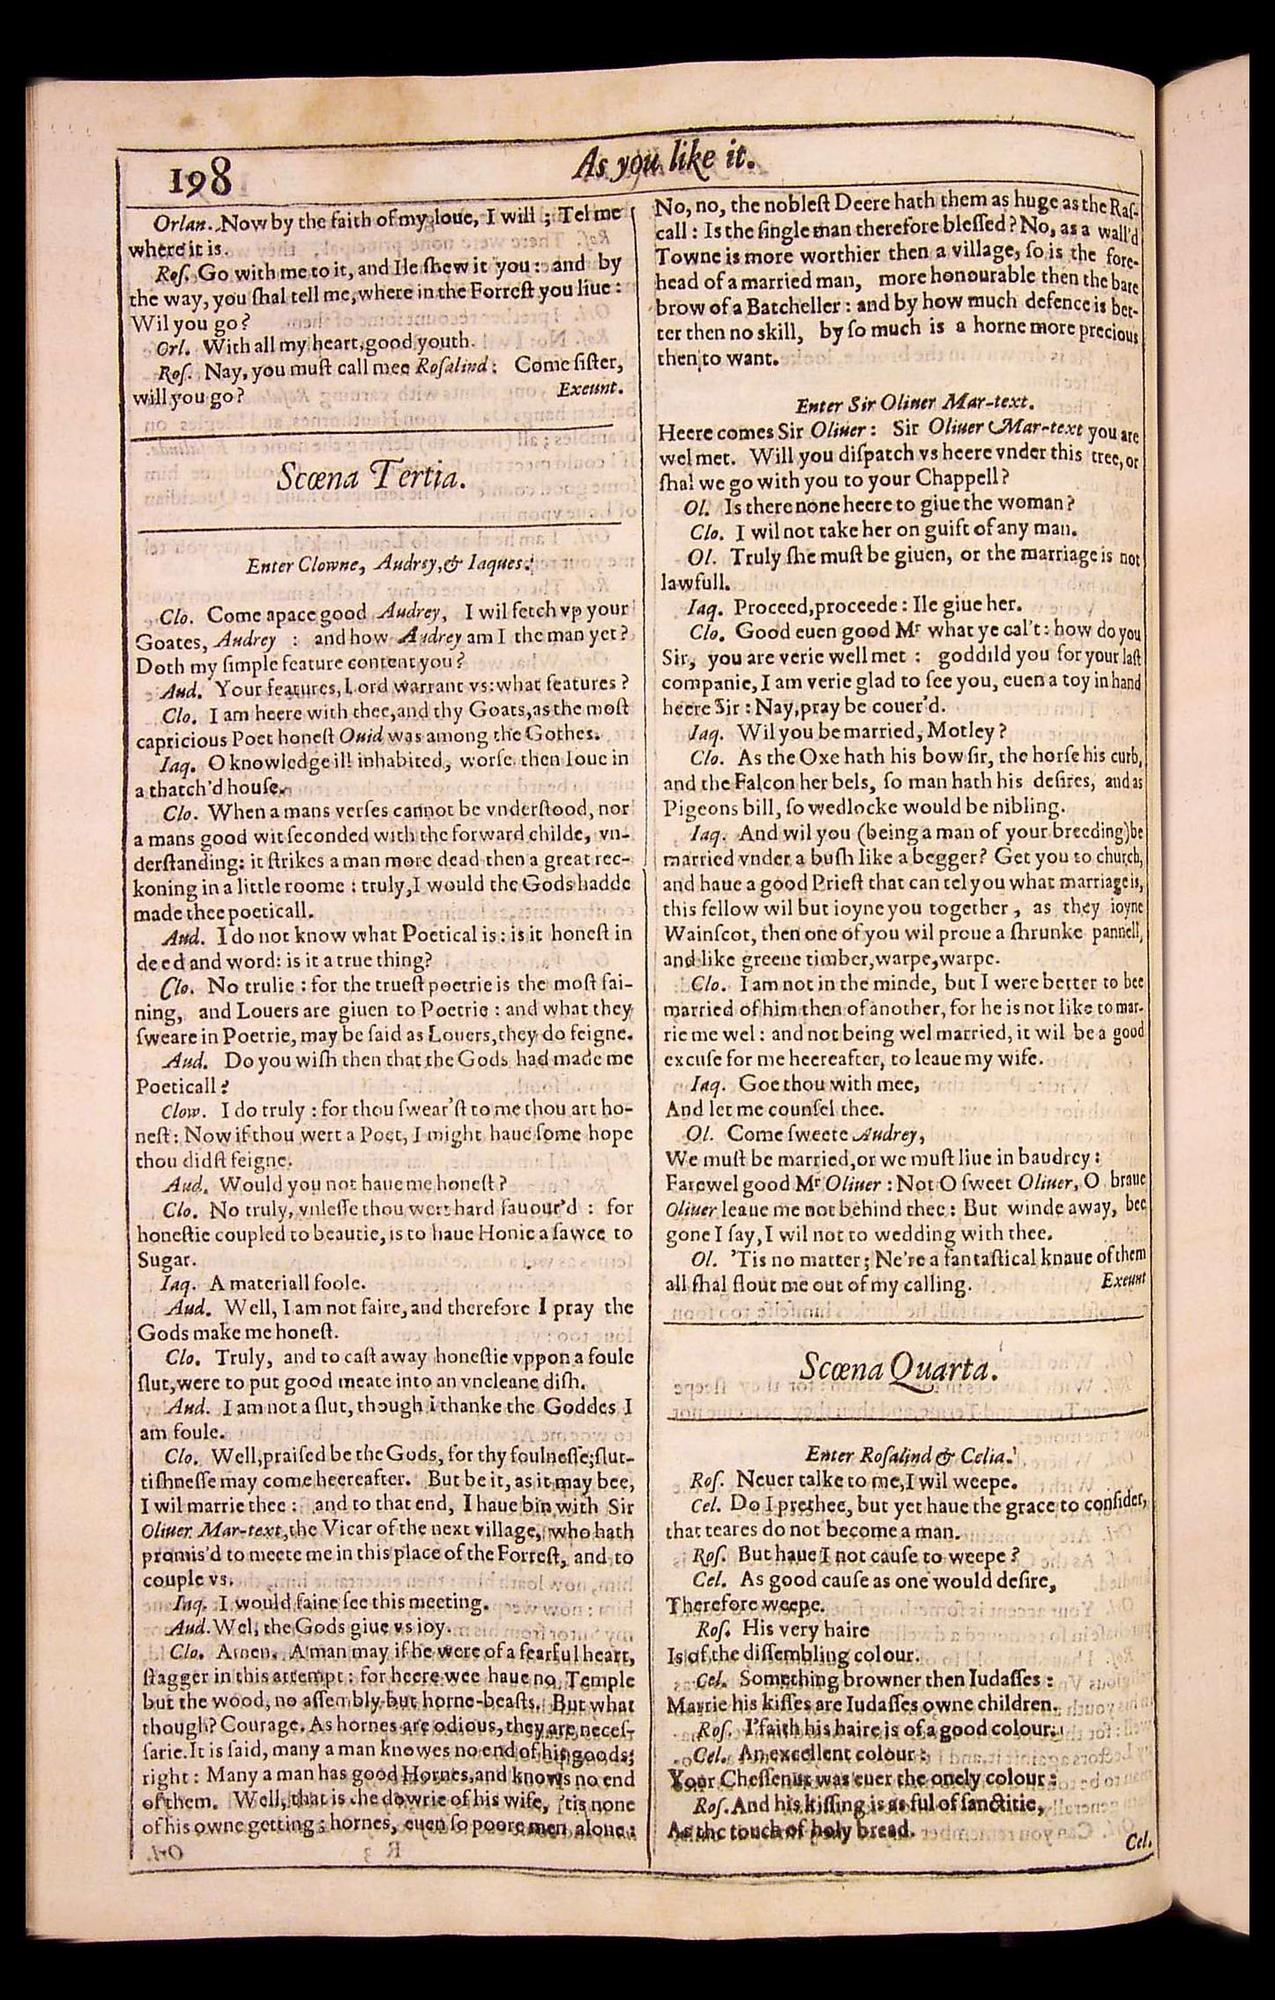 198
As you like it.
Orlan. Now by the faith of my loue, I will ; Tel me
where it is.
Roſ. Go with me to it, and Ile ſhew it you: and by
the way, you ſhal tell me, where in the Forreſt you liue:
Wil you go?
Orl. With all my heart, good youth.
Roſ. Nay, you muſt call mee Roſalind: Come ſiſter,
will you go? Exeunt.
Scœna Tertia.
Enter Clowne, Audrey, & Iaques:
Clo. Come apace good Audrey, I wil fetch vp your
Goates, Audrey : and how Audrey am I the man yet?
Doth my ſimple feature content you?
Aud. Your features, Lord warrant vs: what features?
Clo. I am heere with thee, and thy Goats, as the moſt
capricious Poet honeſt Ouid was among the Gothes.
Iaq. O knowledge ill inhabited, worſe then Ioue in
a thatch'd houſe.
Clo. When a mans verſes cannot be vnderſtood, nor
a mans good wit ſeconded with the forward childe, vn-
derſtanding: it ſtrikes a man more dead then a great rec-
koning in a little roome : truly, I would the Gods hadde
made thee poeticall.
Aud. I do not know what Poetical is: is it honeſt in
deed and word: is it a true thing?
Clo. No trulie : for the trueſt poetrie is the moſt fai-
ning, and Louers are giuen to Poetrie : and what they
ſweare in Poetrie, may be ſaid as Louers, they do feigne.
Aud. Do you wiſh then that the Gods had made me
Poeticall?
Clow. I do truly : for thou ſwear'ſt to me thou art ho-
neſt: Now if thou wert a Poet, I might haue ſome hope
thou didſt feigne.
Aud. Would you not haue me honeſt?
Clo. No truly, vnleſſe thou wert hard fauour'd : for
honeſtie coupled to beautie, is to haue Honie a ſawce to
Sugar.
Iaq. A materiall foole.
Aud. Well, I am not faire, and therefore I pray the
Gods make me honeſt.
Clo. Truly, and to caſt away honeſtie vppon a foule
ſlut, were to put good meate into an vncleane diſh.
Aud. I am not a ſlut, though I thanke the Goddes I
am foule.
Clo. Well, praiſed be the Gods, for thy foulneſſe; ſlut-
tiſhneſſe may come heereafter. But be it, as it may bee,
I wil marrie thee : and to that end, I haue bin with Sir
Oliuer Mar-text, the Vicar of the next village, who hath
promis'd to meete me in this place of the Forreſt, and to
couple vs.
Iaq. I would faine ſee this meeting.
Aud. Wel, the Gods giue vs ioy.
Clo. Amen. A man may if he were of a fearful heart,
ſtagger in this attempt : for heere wee haue no Temple
but the wood, no aſſembly but horne-beaſts. But what
though? Courage. As hornes are odious, they are neceſ-
ſarie. It is ſaid, many a man knowes no end of his goods;
right : Many a man has good Hornes, and knows no end
of them. Well, that is the dowrie of his wife, 'tis none
of his owne getting ; hornes, euen ſo poore men alone :
No, no, the nobleſt Deere hath them as huge as the Raſ-
call : Is the ſingle man therefore bleſſed? No, as a wall'd
Towne is more worthier then a village, ſo is the fore-
head of a married man, more honourable then the bare
brow of a Batcheller : and by how much defence is bet-
ter then no skill, by ſo much is a horne more precious
then to want.
Enter Sir Oliuer Mar-text.
Heere comes Sir Oliuer: Sir Oliuer Mar-text you are
wel met. Will you diſpatch vs heere vnder this tree, or
ſhal we go with you to your Chappell?
Ol. Is there none heere to giue the woman?
Clo. I wil not take her on guift of any man.
Ol. Truly ſhe muſt be giuen, or the marriage is not
lawfull.
Iaq. Proceed, proceede : Ile giue her.
Clo. Good euen good Mr what ye cal't : how do you
Sir, you are verie well met : goddild you for your laſt
companie, I am verie glad to ſee you, euen a toy in hand
heere Sir : Nay, pray be couer'd.
Iaq. Wil you be married, Motley?
Clo. As the Oxe hath his bow ſir, the horſe his curb,
and the Falcon her bels, ſo man hath his deſires, and as
Pigeons bill, ſo wedlocke would be nibling.
Iaq. And wil you (being a man of your breeding) be
married vnder a buſh like a begger? Get you to church,
and haue a good Prieſt that can tel you what marriage is,
this fellow wil but ioyne you together, as they ioyne
Wainſcot, then one of you wil proue a ſhrunke pannell,
and like greene timber, warpe, warpe.
Clo. I am not in the minde, but I were better to bee
married of him then of another, for he is not like to mar-
rie me wel : and not being wel married, it wil be a good
excuſe for me heereafter, to leaue my wife.
Iaq. Goe thou with mee,
And let me counſel thee.
Ol. Come ſweete Audrey,
We muſt be married, or we muſt liue in baudrey :
Farewel good Mr Oliuer : Not O ſweet Oliuer, O braue
Oliuer leaue me not behind thee : But winde away, bee
gone I ſay, I wil not to wedding with thee.
Ol. 'Tis no matter; Ne're a fantaſtical knaue of them
all ſhal flout me out of my calling. Exeunt
Scœna Quarta.
Enter Roſalind & Celia.
Roſ. Neuer talke to me, I wil weepe.
Cel. Do I prethee, but yet haue the grace to conſider,
that teares do not become a man.
Roſ. But haue I not cauſe to weepe?
Cel. As good cauſe as one would deſire,
Therefore weepe.
Roſ. His very haire
Is of the diſſembling colour.
Cel. Something browner then Iudaſſes :
Marrie his kiſſes are Iudaſſes owne children.
Roſ. I'faith his haire is of a good colour.
Cel. An excellent colour :
Your Cheſſenut was euer the onely colour :
Roſ. And his kiſſing is as ful of ſanctitie,
As the touch of holy bread.
Cel.